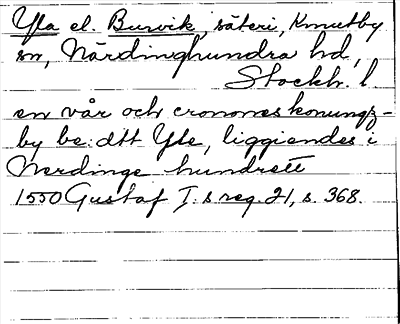 Yla el. Burvik, säteri, Knutby
sn, Närdinghundra hd,
Stockh. l
en vår och cronones konungz-
by be:dtt Yle, liggiendes i
Nerdinge hundrett
1550 Gustaf I.s reg. 21, s. 368.